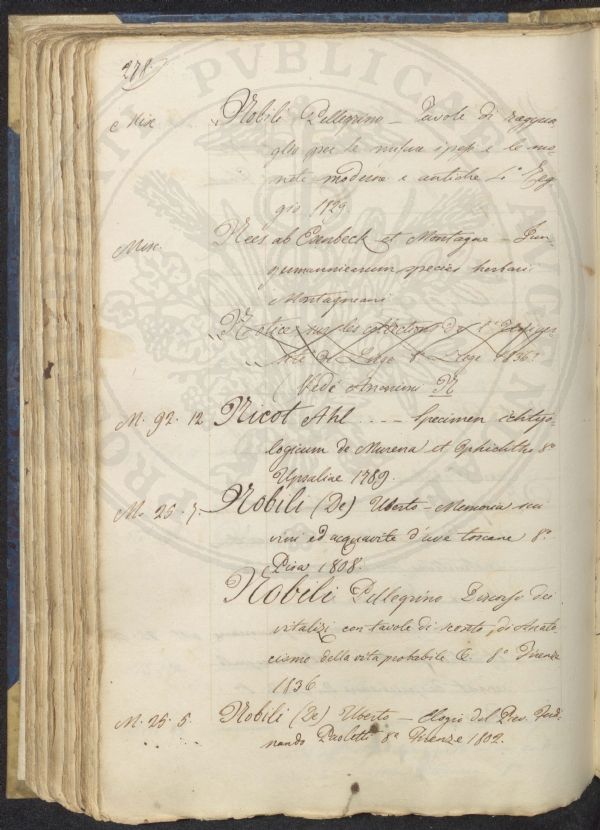 278.
Misc. Nobili Pellegrino — Tavole di raggua
glio per le misure i pesi e le mo-
nete moderne e antiche 4.° Reg
gio. 1829.
Misc. Nees ab Esenbeck et Montagne — Jun-
germannicarum species herbarii
Montagneani
Notice sur les collections de l'
de Liege 8.° Liege 1836.
(Vedi Anonimi N
M. 92. 12 Nicot Ahl .... Specimen ichtyo-
logicum de Murena et Ophichtho 8.°
Upsaliae 1789.
M. 25. 7. Nobili (De) Uberto — Memoria sui
vini ed acquavite d'uva toscane 8.°
Pisa 1808.
Nobili Pellegrino Discorso dei
vitalizi con tavole di sconto, di
cismo della vita probabile &. 8.° Firenze
1836
M. 25. 5. Nobili (De) Uberto — Elogio del Prev. Ferdi
nando Paoletti 8.° Firenze 1802.